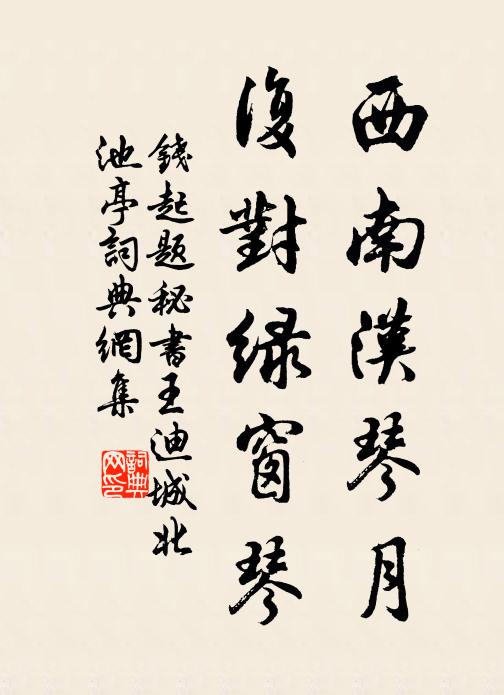 西南漢琴月
復對緑窗琴
錢起題秘書王迪城北
池亭詞典網集
詞典
网印